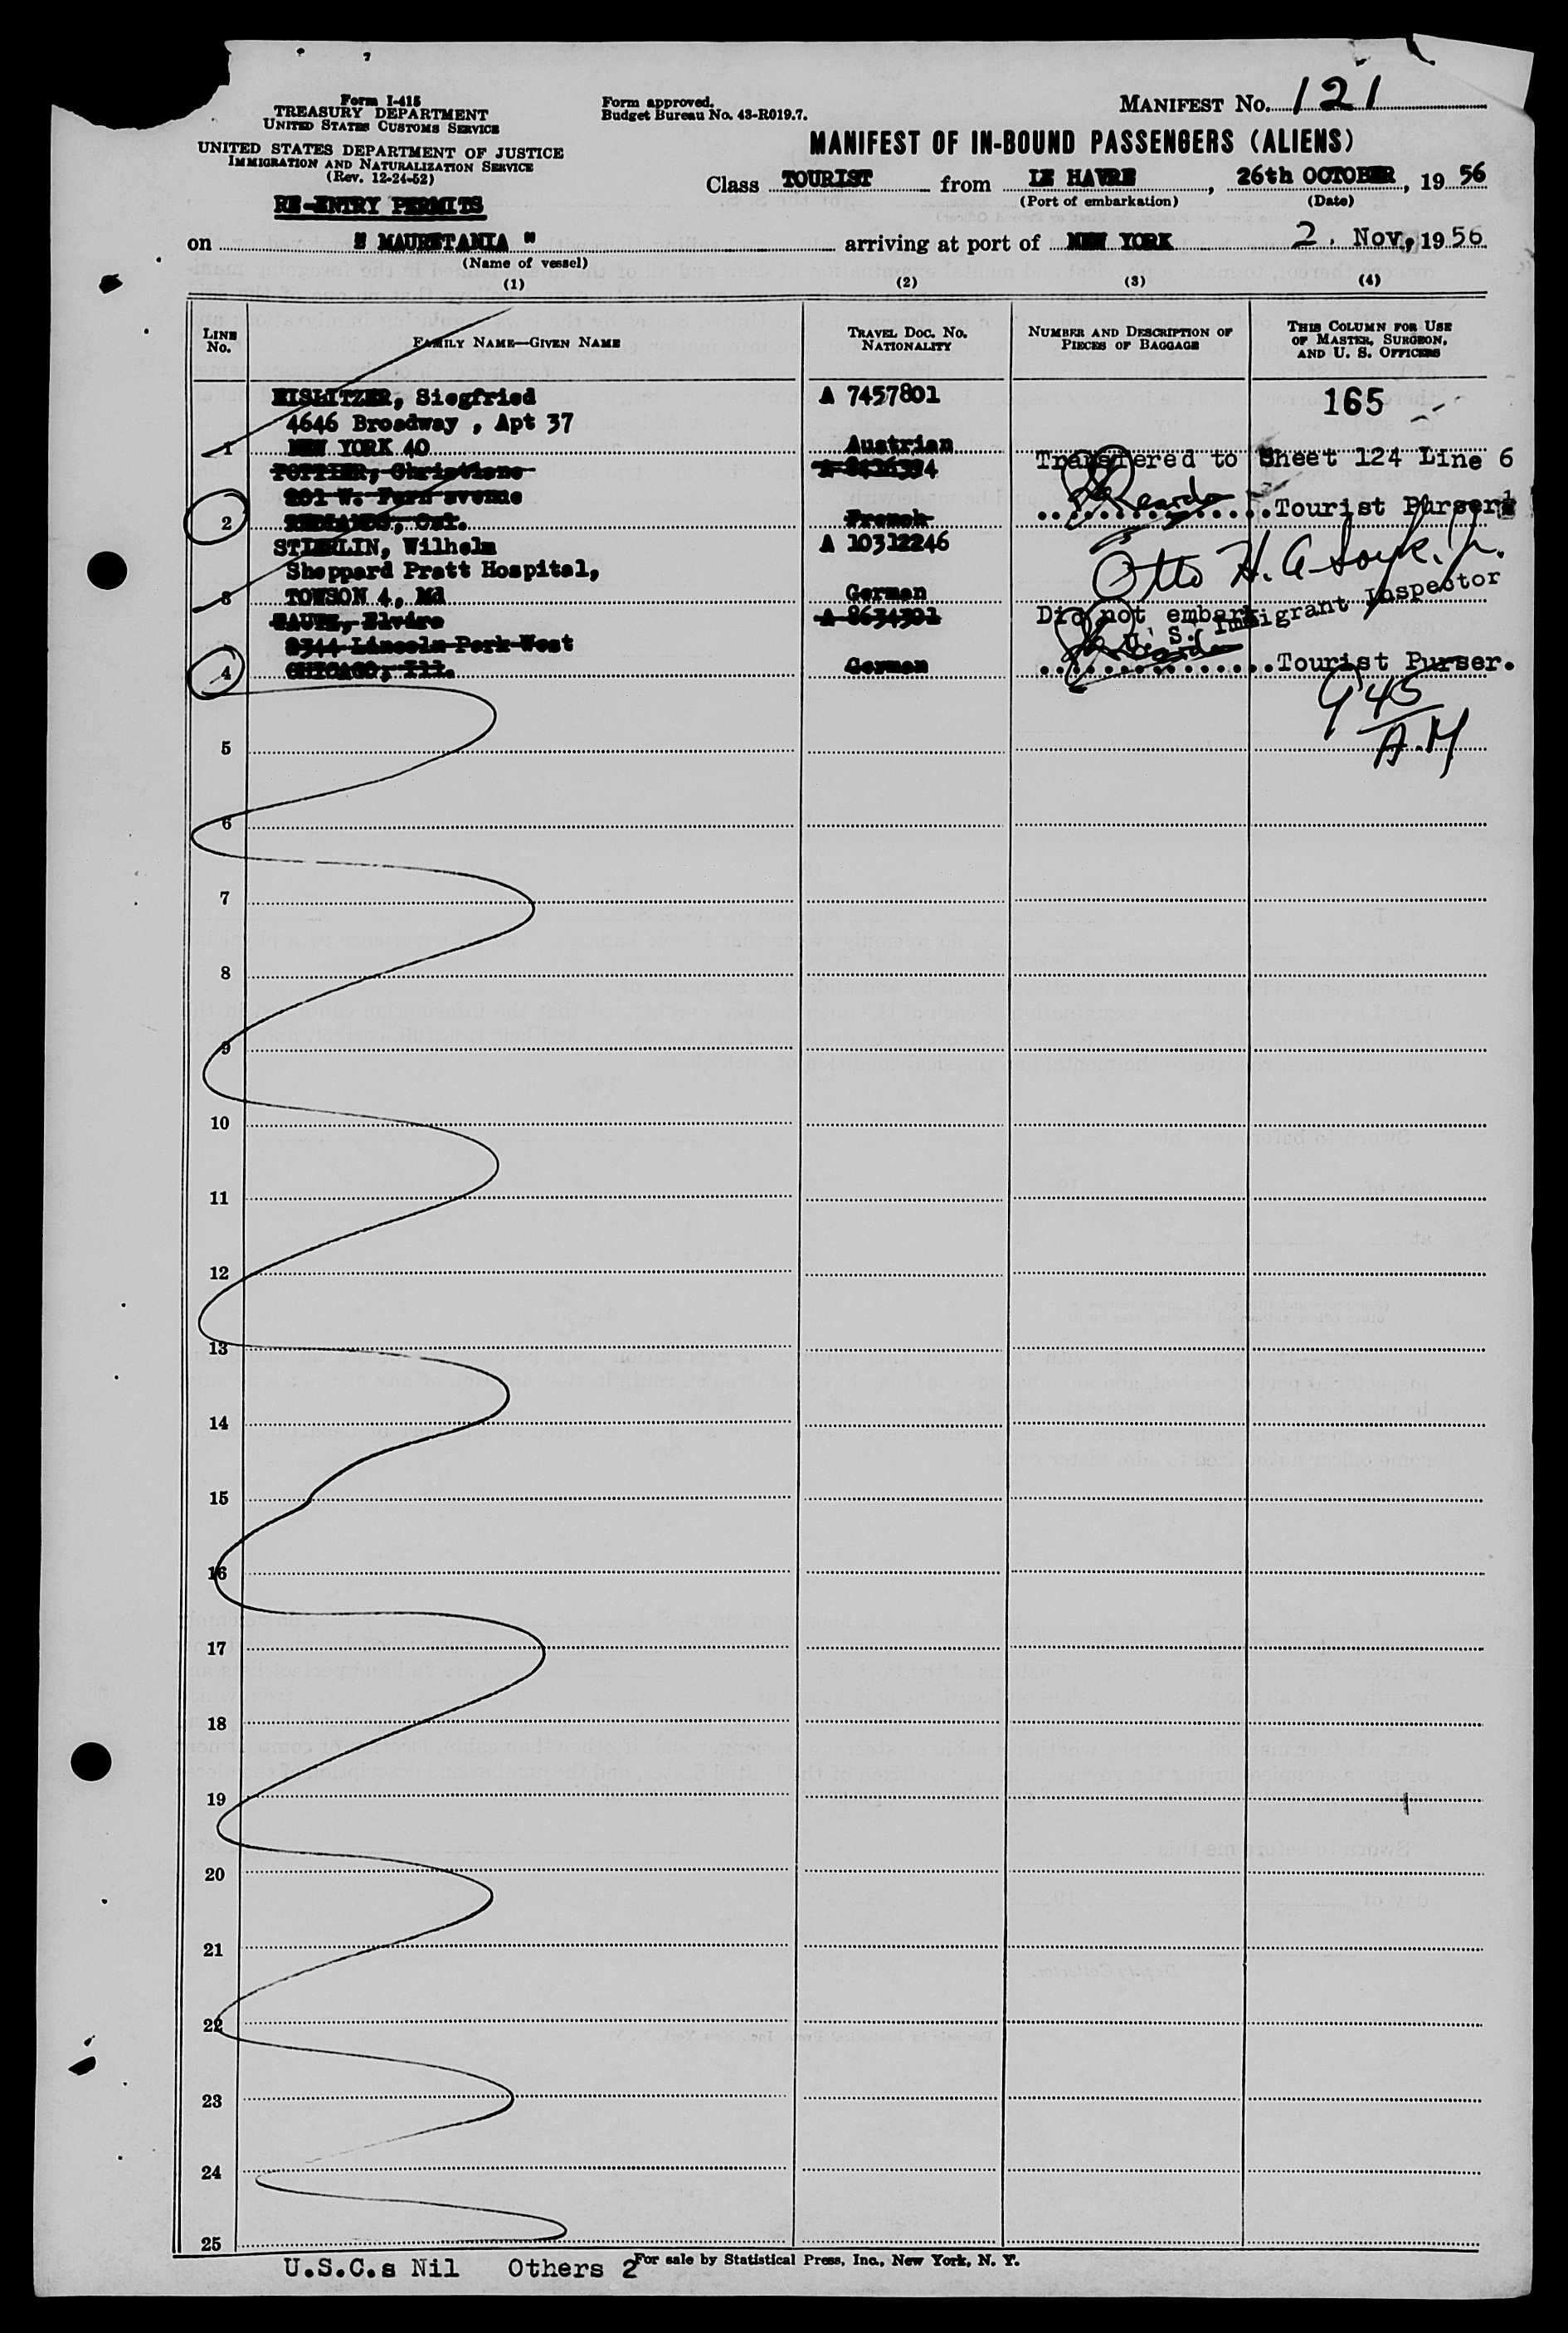 Form I-415
TREASURY DEPARTMENT
UNITED STATES CUSTOMS SERVICE
UNITED STATES DEPARTMENT OF JUSTICE
IMMIGRATION AND NATURALIZATION SERVICE
(Rev. 12-24-52)
RE-ENTRY PERMITS
Form approved.
Budget Bureau No. 43-R019.7.
MANIFEST NO. 121
MANIFEST OF IN-BOUND PASSENGERS (ALIENS)
Class TOURIST from LE HAVRE, 26th OCTOBER, 19 56
(Port of embarkation) (Date)
on " MAURETANIA " arriving at port of NEW YORK 2. Nov, 19 56
(Name of vessel)
(1) (2) (3) (4)
LINE NO. FAMILY NAME—GIVEN NAME TRAVEL DOC. NO. NATIONALITY NUMBER AND DESCRIPTION OF PIECES OF BAGGAGE THIS COLUMN FOR USE OF MASTER, SURGEON, AND U. S. OFFICERS
EISLITZER, Siegfried A 7457801 165
4646 Broadway , Apt 37
1 NEW YORK 40 Austrian
POTTIER, Christiane Transfered to Sheet 124 Line 6
201 W. Fern avenue
2 REDLANDS, Cal. French Tourist Purser
STIERLIN, Wilhelm A 10312246
Sheppard Pratt Hospital,
3 TOWSON 4, Md German
Elvire A 8634301 Did not embark
2344 Lincoln Park West
4 CHICAGO, Ill. German Tourist Purser.
Otto H.
U. S. Immigrant Inspector
9 45
A.M
5
6
7
8
9
10
11
12
13
14
15
16
17
18
19
20
21
22
23
24
25
U.S.C.s Nil Others 2
For sale by Statistical Press, Inc., New York, N. Y.